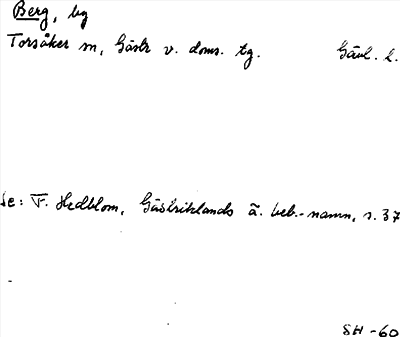 Berg, by
Torsåker sn, Gästr v. doms. tg. Gävl. l.
se: F. Hedblom, Gästriklands ä. beb.-namn, s. 37
SH -60